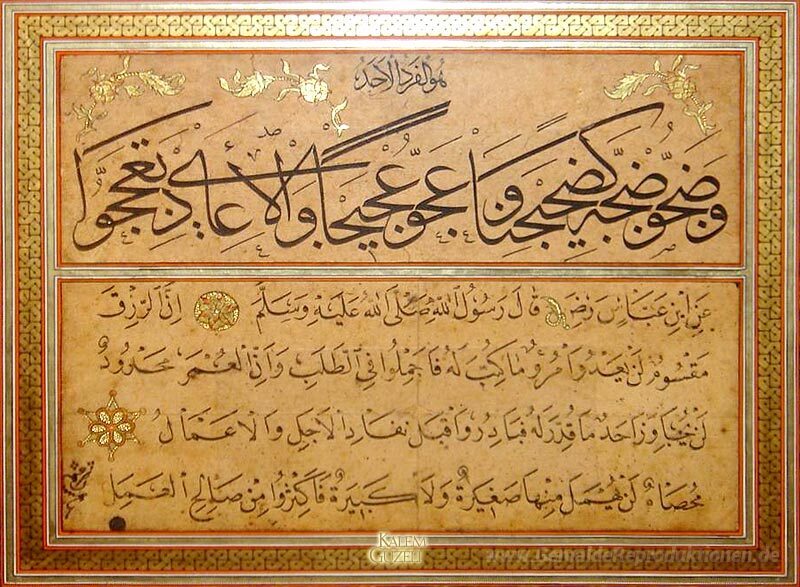 هو الفرد الاحد
وَضَجُّو ضَجَّةً كَضَجِيجِنَا وَعَجُّو عَجِيجًا وَالْأَعَادِي تَعَجَّجُوا
عَنِ ابْنِ عَبَاسٍ رَضِ قَالَ رَسُولُ اللهِ صَلَّى اللهُ عَلَيْهِ وَسَلَّمَ اِنَّ الرِّزْقَ
مَقْسُومٌ لَنْ يَعْدُوَ امْرُؤٌ مَا كُتِبَ لَهُ فَاَجْمِلُوا فِي الطَّلَبِ وَاِنَّ الْعُمَرَ مَحْدُودٌ
لَنْ يُجَاوِزَ اَحَدٌ مَا قُدِّرَ لَهُ فَبَادِرُوا قَبْلَ نَفَادِ الْاَجَلِ وَالْاَعْمَالُ
مُحْصَاةٌ لَنْ يُهْمَلَ مِنْهَا صَغِيرَةٌ وَلَا كَبِيرَةٌ فَاَكْثِرُوا مِنْ صَالِحِ الْعَمَلِ
KALEM
GÜZELİ
www.GemäldeReproduktionen.de